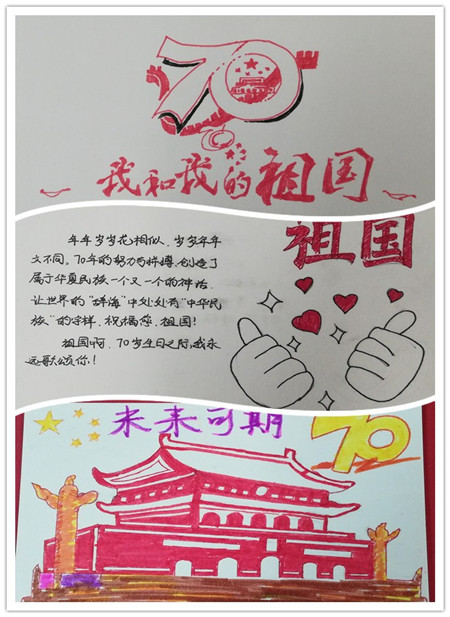 70
我和我的祖国
祖国
年年岁岁花相似，岁岁年年
大不同。70年的努力与拼搏，创造了
属于华夏民族一个又一个的神话，
让世界的“群海”中处处有“中华民
族”的字样，祝福您，祖国！
祖国啊，70岁生日之际，我永
远歌颂你！
未来可期
70